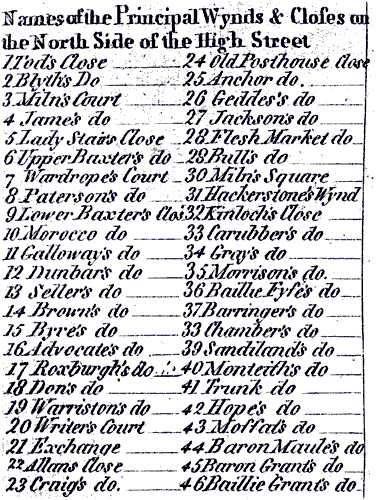 Names of the Principal Wynds & Closes on
the North Side of the High Street
1 Tod's Close
2 Blyth's Do
3 Miln's Court
4 James's do
5 Lady Stairs Close
6 Upper Baxter's do
7 Wardrope's Court
8 Paterson's do
9 Lower Baxter's Clos
10 Morocco do
11 Galloway's do
12 Dunbar's do
13 Seller's do
14 Brown's do
15 Byre's do
16 Advocate's do
17 Roxburgh's do
18 Don's do
19 Warriston's do
20 Writer's Court
21 Exchange
22 Allans Close
23 Craig's do.
24 Old Posthouse close
25 Anchor do.
26 Geddes's do
27 Jackson's do
28 Flesh Market do
29 Bull's do
30 Miln's Square
31 Hackerstone's Wynd
32 Kinloch's Close
33 Carubber's do
34 Gray's do
35 Morrison's do.
36 Baillie Fyfe's do
37 Barringer's do
33 Chamber's do
39 Sandiland's do
40 Monteith's do
41 Trunk do
42 Hope's do
43 Moffat's do
44 Baron Maule's do
45 Baron Grant's do
46 Baillie Grant's do